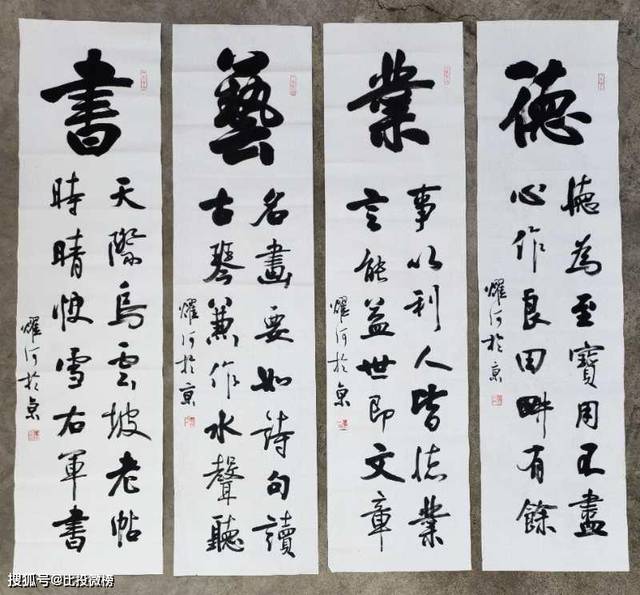 德
德為至寶用不盡
心作良田畊有餘
燿河於京
業
事以利人皆德業
言能益世即文章
燿河於京
藝
名畫要如詩句讀
古琴兼作水聲聽
燿河於京
書
天際烏雲坡老帖
時晴快雪右軍書
燿河於京
搜狐号@比投微榜